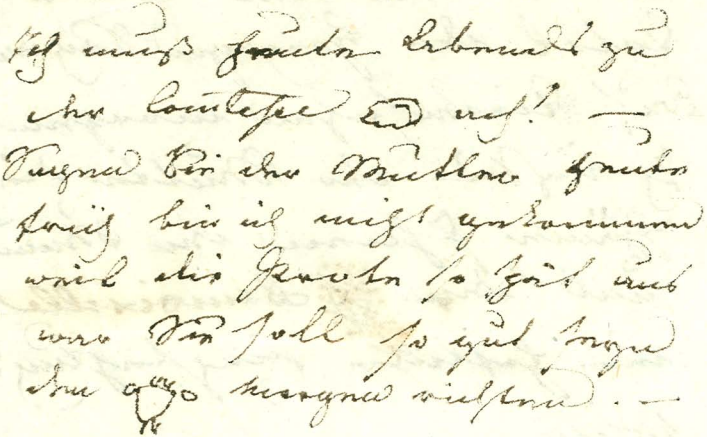 Ich muß heute Abends zu
der Comtesse ach! —
Sagen Sie der Mutter heute
früh bin ich nicht gekommen
weil die Probe so spät aus
war Sie soll so gut seyn
den morgen richten. —